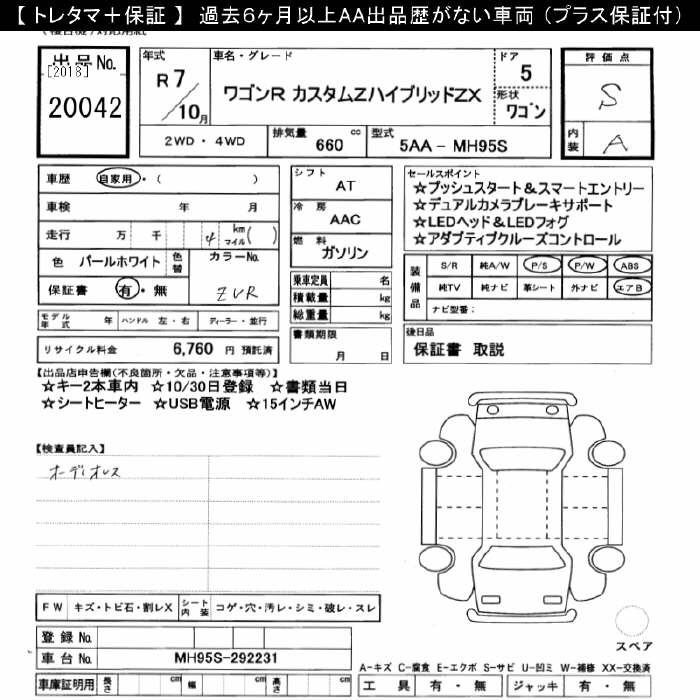 【 トレタマ＋保証 】 過去６ヶ月以上ＡＡ出品歴がない車両（プラス保証付）
出 品 No.
[2018]
20042
年式
R 7
10 月
車名・グレード
ワゴンR カスタムZハイブリッドZX
ドア
5
形状
ワゴン
評 価 点
S
内装
A
2WD ・ 4WD
排気量
660
cc
型式
5AA - MH95S
車歴
自家用・（ ）
車検 年 月
走行 万 千 4 km マイル ( )
色 パールホワイト
色替
カラーNo.
ZVR
保証書 有・無
モデル年式 年
ハンドル 左・右
ディーラー・並行
リサイクル料金 6,760 円 預託済
シフト
AT
冷 房
AAC
燃 料
ガソリン
乗車定員 名
積載量 kg
総重量 kg
書類期限
月 日
セールスポイント
☆プッシュスタート＆スマートエントリー
☆デュアルカメラブレーキサポート
☆LEDヘッド＆LEDフォグ
☆アダプティブクルーズコントロール
装備品
S/R 純A/W P/S P/W ABS
純TV 純ナビ 革シート 外ナビ エアB
ナビ型番：
後日品
保証書 取説
【出品店申告欄(不良箇所・欠品・注意事項等)】
☆キー2本車内 ☆10/30日登録 ☆書類当日
☆シートヒーター ☆USB電源 ☆15インチAW
【検査員記入】
オーディオレス
FW キズ・トビ石・割レX
シート内装 コゲ・穴・汚レ・シミ・破レ・スレ
登 録 No.
車 台 No. MH95S-292231
車庫証明用 長さ cm 幅 cm 高さ cm
スペア
A-キズ C-腐食 E-エクボ S-サビ U-凹ミ W-補修 XX-交換済
工 具 有 ・ 無 ジャッキ 有 ・ 無